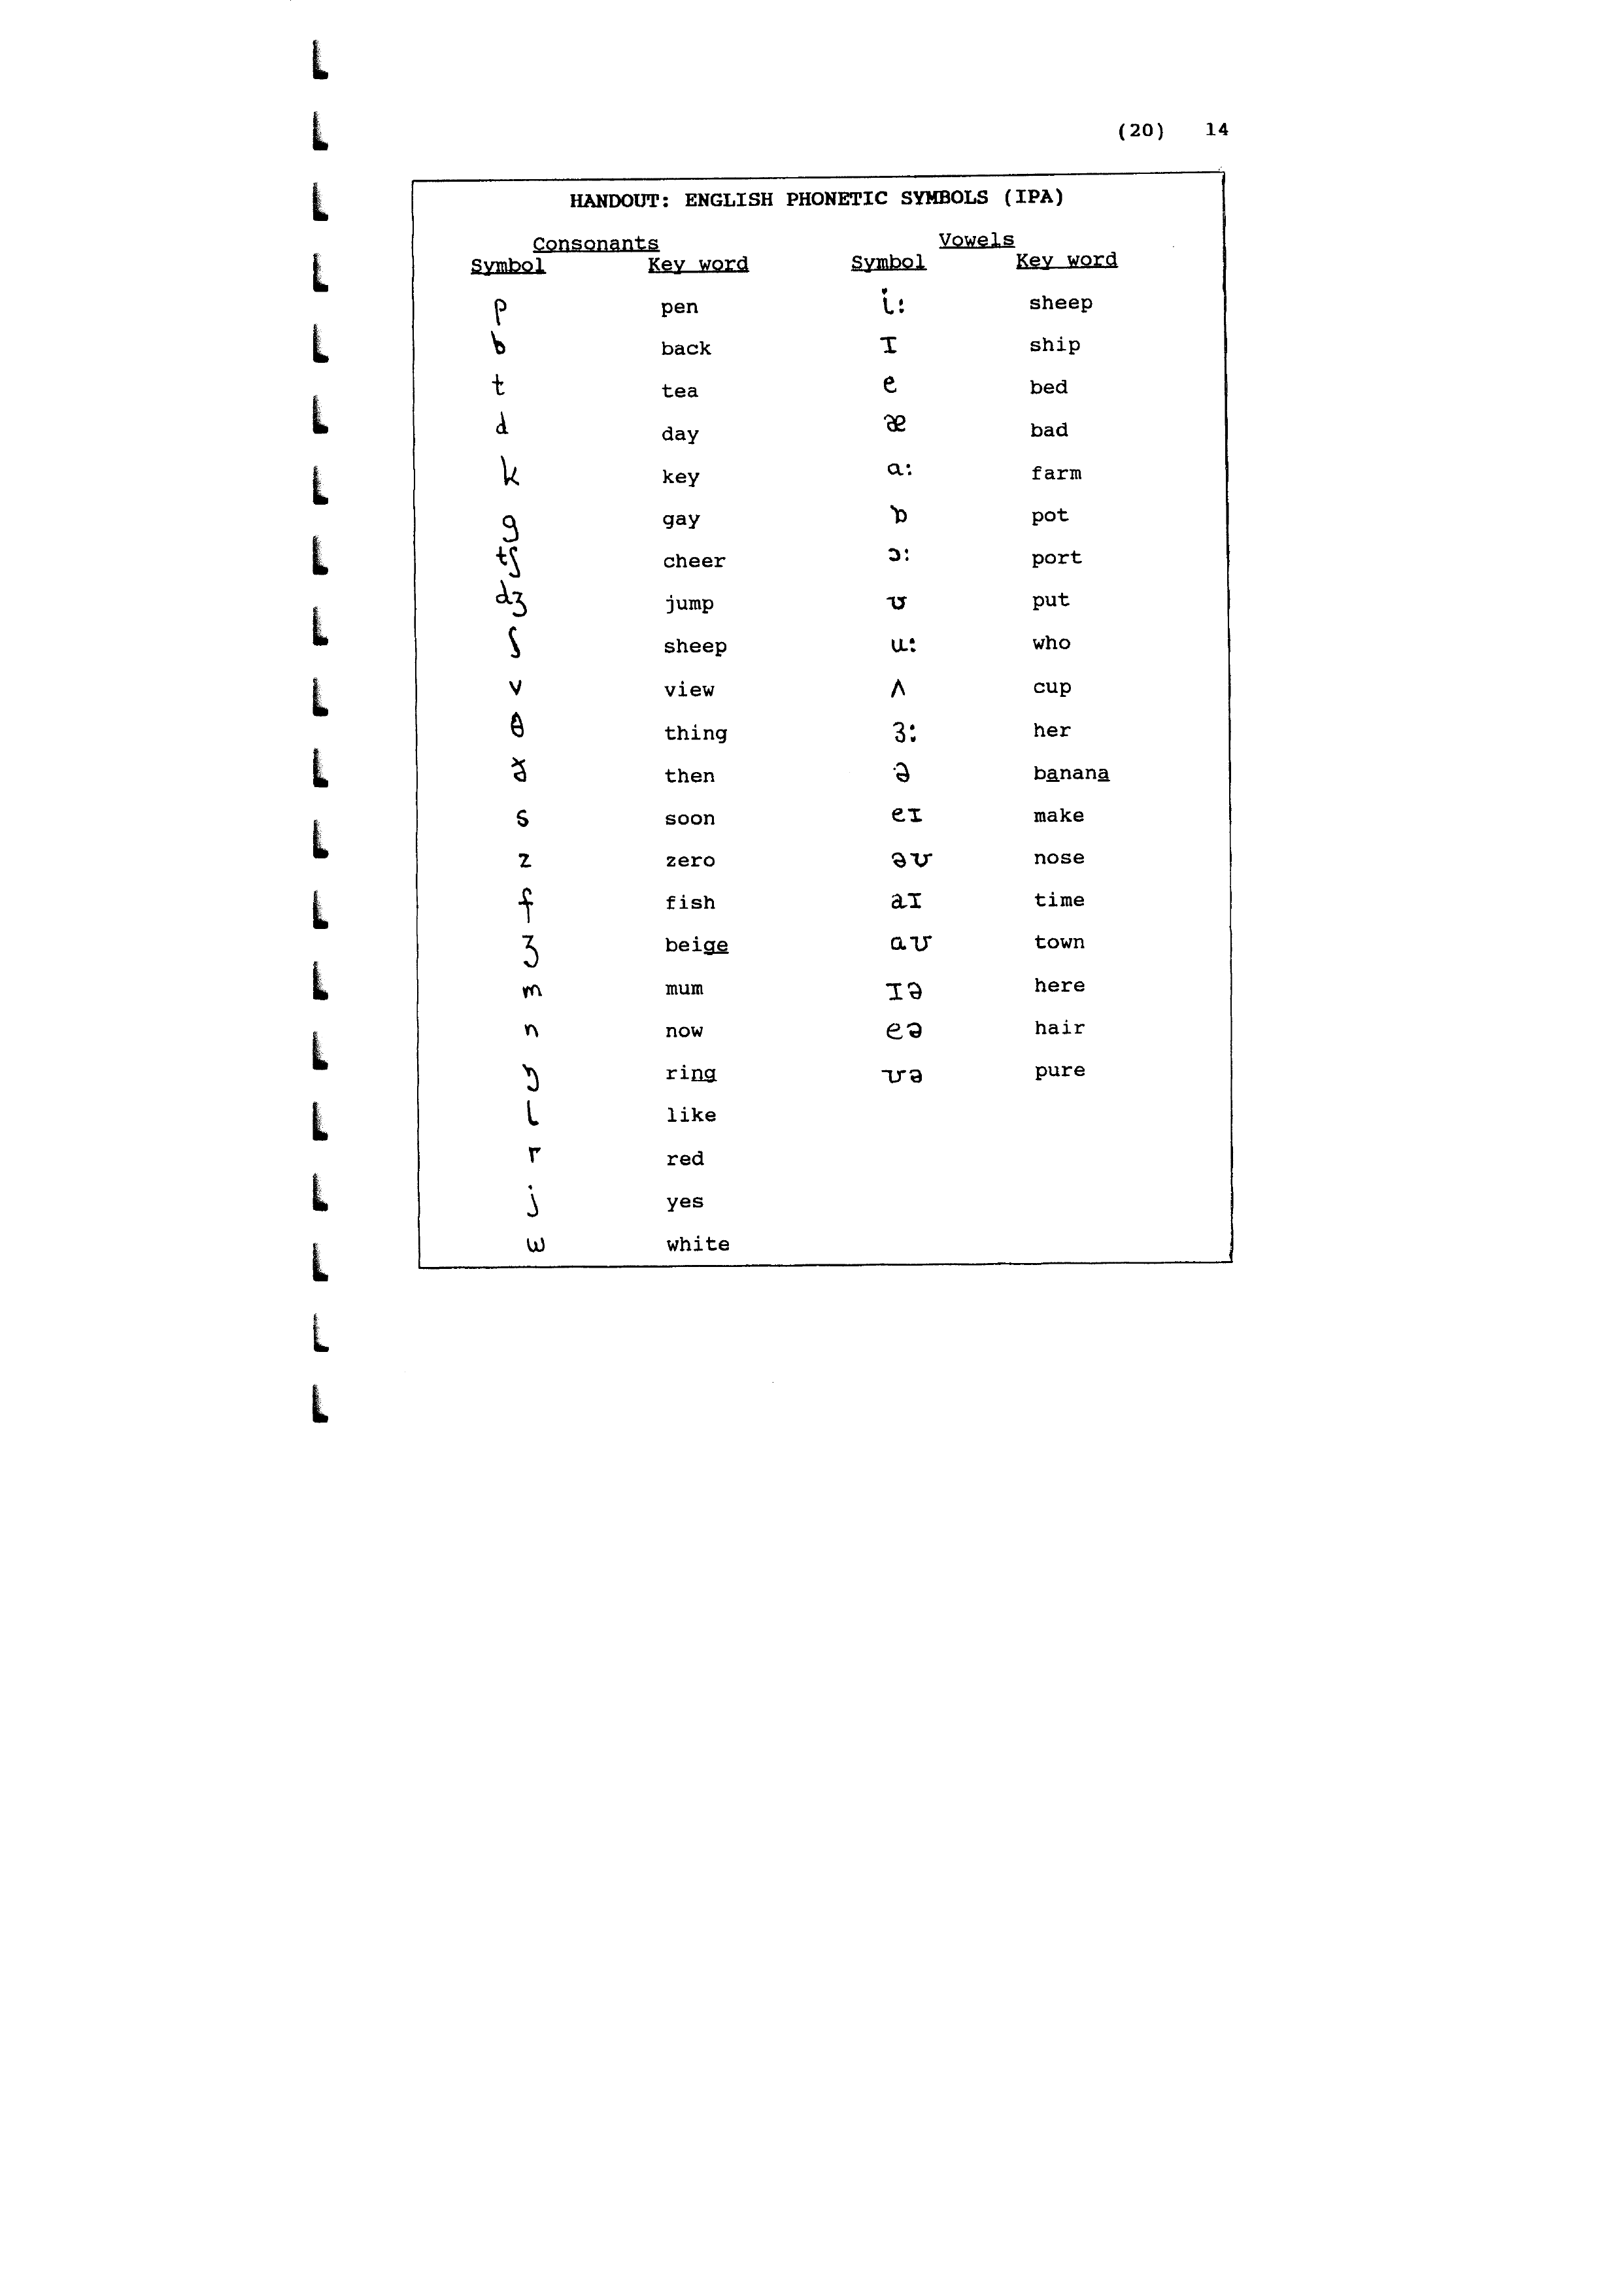 (20) 14
HANDOUT: ENGLISH PHONETIC SYMBOLS (IPA)
Consonants Vowels
Symbol Key word Symbol Key word
p pen i: sheep
b back ɪ ship
t tea e bed
d day æ bad
k key ɑ: farm
g gay ɒ pot
tʃ cheer ɔ: port
dʒ jump ʊ put
ʃ sheep u: who
v view ʌ cup
θ thing ɜ: her
ð then ə banana
s soon eɪ make
z zero əʊ nose
f fish aɪ time
ʒ beige ɑʊ town
m mum ɪə here
n now eə hair
ŋ ring ʊə pure
l like
r red
j yes
w white